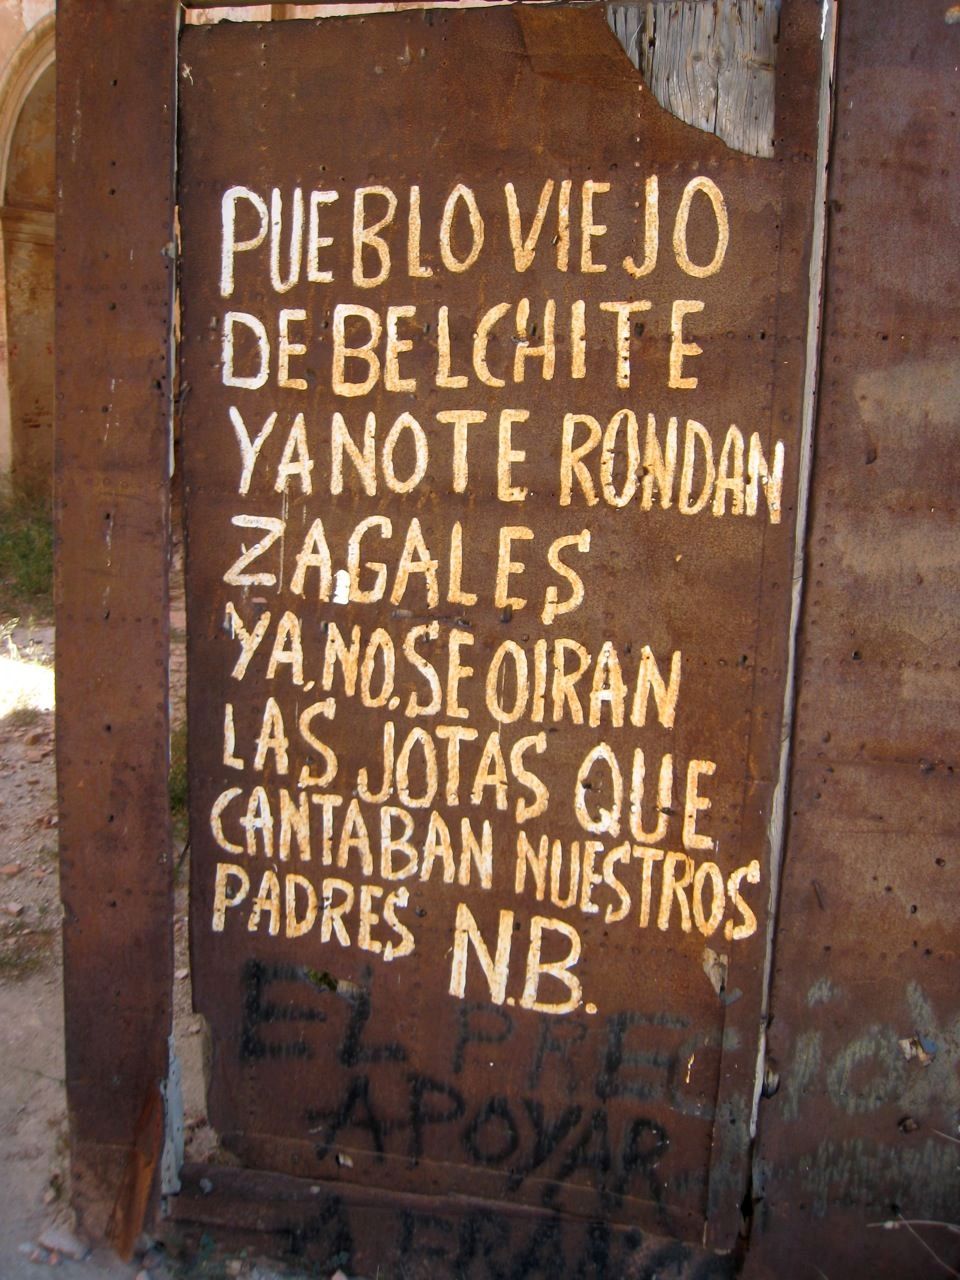 PUEBLO VIEJO
DE BELCHITE
YA NO TE RONDAN
ZAGALES
YA, NO, SE OIRAN
LAS JOTAS QUE
CANTABAN NUESTROS
PADRES N.B.
EL PRECIO
APOYAR
A